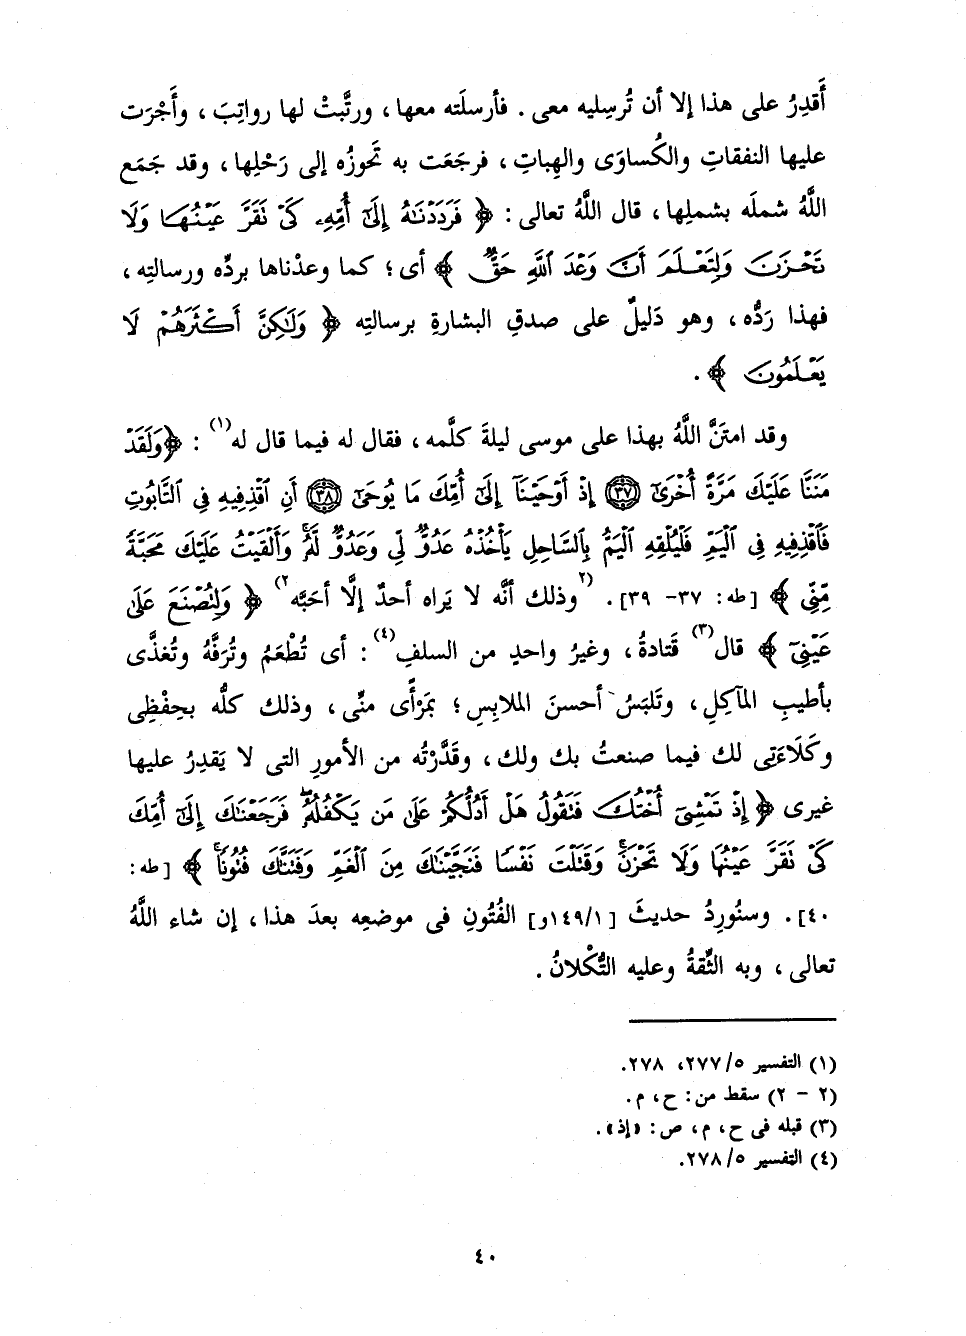 أَقدِرُ على هذا إلا أن تُرسِليه معى . فأرسلَته معها ، ورتَّبتْ لها رواتِبَ ، وأَجْرَت
عليها النفقاتِ والكُساوَى والهِباتِ ، فرجَعَت به تَحوزُه إلى رَحْلِها ، وقد جَمَع
اللَّهُ شملَه بشملِها ، قال اللَّهُ تعالى : ﴿ فَرَدَدْنَٰهُ إِلَىٰٓ أُمِّهِۦ كَىْ تَقَرَّ عَيْنُهَا وَلَا
تَحْزَنَ وَلِتَعْلَمَ أَنَّ وَعْدَ ٱللَّهِ حَقٌّ ﴾ أى ؛ كما وعدْناها بردِّه ورسالتِه ،
فهذا رَدُّه ، وهو دَليلٌ على صدقِ البشارةِ برسالتِه ﴿ وَلَٰكِنَّ أَكْثَرَهُمْ لَا
يَعْلَمُونَ ﴾ .
وقد امتَنَّ اللَّهُ بهذا على موسى ليلةَ كلَّمه ، فقال له فيما قال له(١) : ﴿وَلَقَدْ
مَنَنَّا عَلَيْكَ مَرَّةً أُخْرَىٰٓ ﴿٣٧﴾ إِذْ أَوْحَيْنَآ إِلَىٰٓ أُمِّكَ مَا يُوحَىٰٓ ﴿٣٨﴾ أَنِ ٱقْذِفِيهِ فِى ٱلتَّابُوتِ
فَٱقْذِفِيهِ فِى ٱلْيَمِّ فَلْيُلْقِهِ ٱلْيَمُّ بِٱلسَّاحِلِ يَأْخُذْهُ عَدُوٌّ لِّى وَعَدُوٌّ لَّهُۥ ۚ وَأَلْقَيْتُ عَلَيْكَ مَحَبَّةً
مِّنِّى ﴾ [طه: ٣٧- ٣٩]. (٢وذلك أنَّه لا يَراه أحدٌ إلَّا أحَبَّه٢) ﴿ وَلِتُصْنَعَ عَلَىٰ
عَيْنِىٓ ﴾ قال(٣) قَتادةُ ، وغيرُ واحدٍ من السلفِ(٤) : أى تُطْعَمُ وتُرَفَّهُ وتُغذَّى
بأطيبِ المآكِلِ ، وتَلبَسُ أحسنَ الملابِسِ ؛ بمَرْأًى منِّى ، وذلك كلُّه بحِفْظِى
وكَلَاءَتِى لك فيما صنعتُ بك ولك ، وقَدَّرْتُه من الأمورِ التى لا يَقدِرُ عليها
غيرى ﴿ إِذْ تَمْشِىٓ أُخْتُكَ فَتَقُولُ هَلْ أَدُلُّكُمْ عَلَىٰ مَن يَكْفُلُهُۥ ۖ فَرَجَعْنَٰكَ إِلَىٰٓ أُمِّكَ
كَىْ تَقَرَّ عَيْنُهَا وَلَا تَحْزَنَ ۚ وَقَتَلْتَ نَفْسًا فَنَجَّيْنَٰكَ مِنَ ٱلْغَمِّ وَفَتَنَّٰكَ فُتُونًا ۚ ﴾ [طه:
٤٠]. وسنُورِدُ حديثَ [١٤٩/١و] الفُتُونِ فى موضعِه بعدَ هذا ، إن شاء اللَّهُ
تعالى ، وبه الثِّقةُ وعليه التُّكْلانُ .
(١) التفسير ٥/ ٢٧٧، ٢٧٨.
(٢ - ٢) سقط من: ح، م.
(٣) قبله فى ح، م، ص: «إذ».
(٤) التفسير ٥/ ٢٧٨.
٤٠